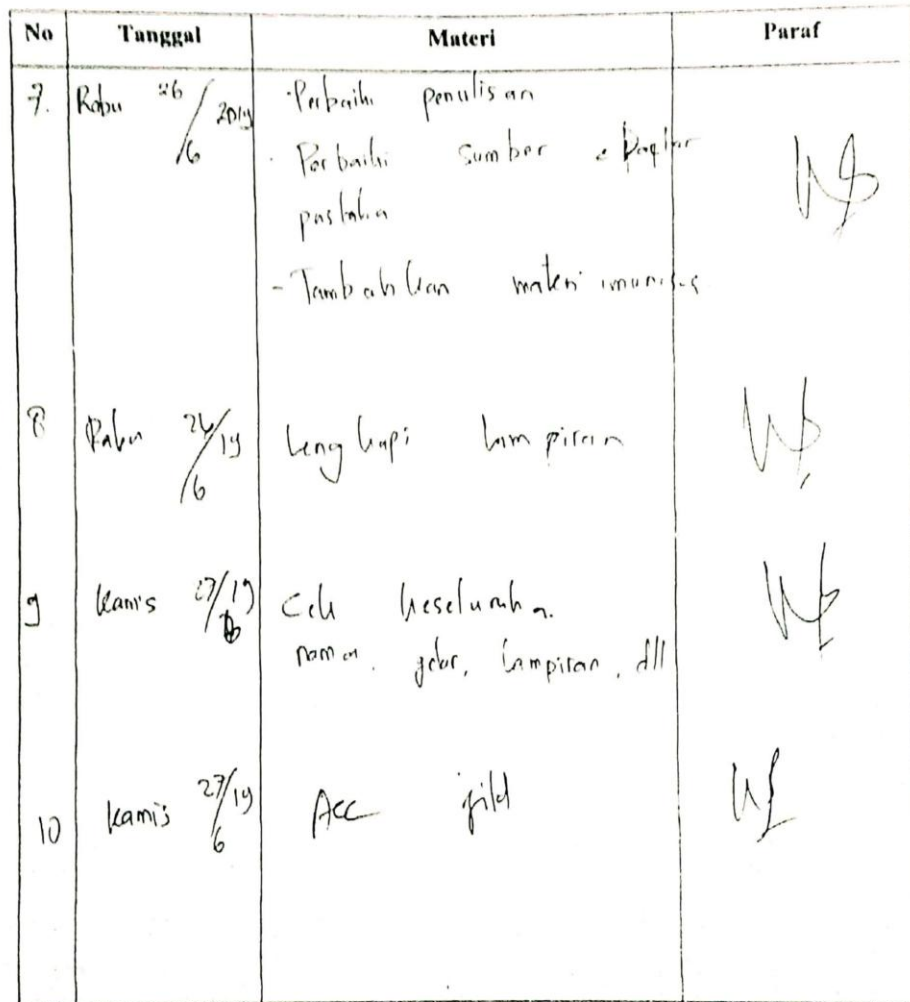 No Tanggal Materi Paraf
7. Rabu 26/6 2019 - Perbaiki penulisan
- Perbaiki sumber & Daftar
pustaka
- Tambahkan materi imunisas
8 Rabu 26/19 6 Lengkapi lampiran
9 Kamis 27/19 6 Cek keseluruha.
nama, gelar, lampiran, dll
10 Kamis 27/19 6 Acc